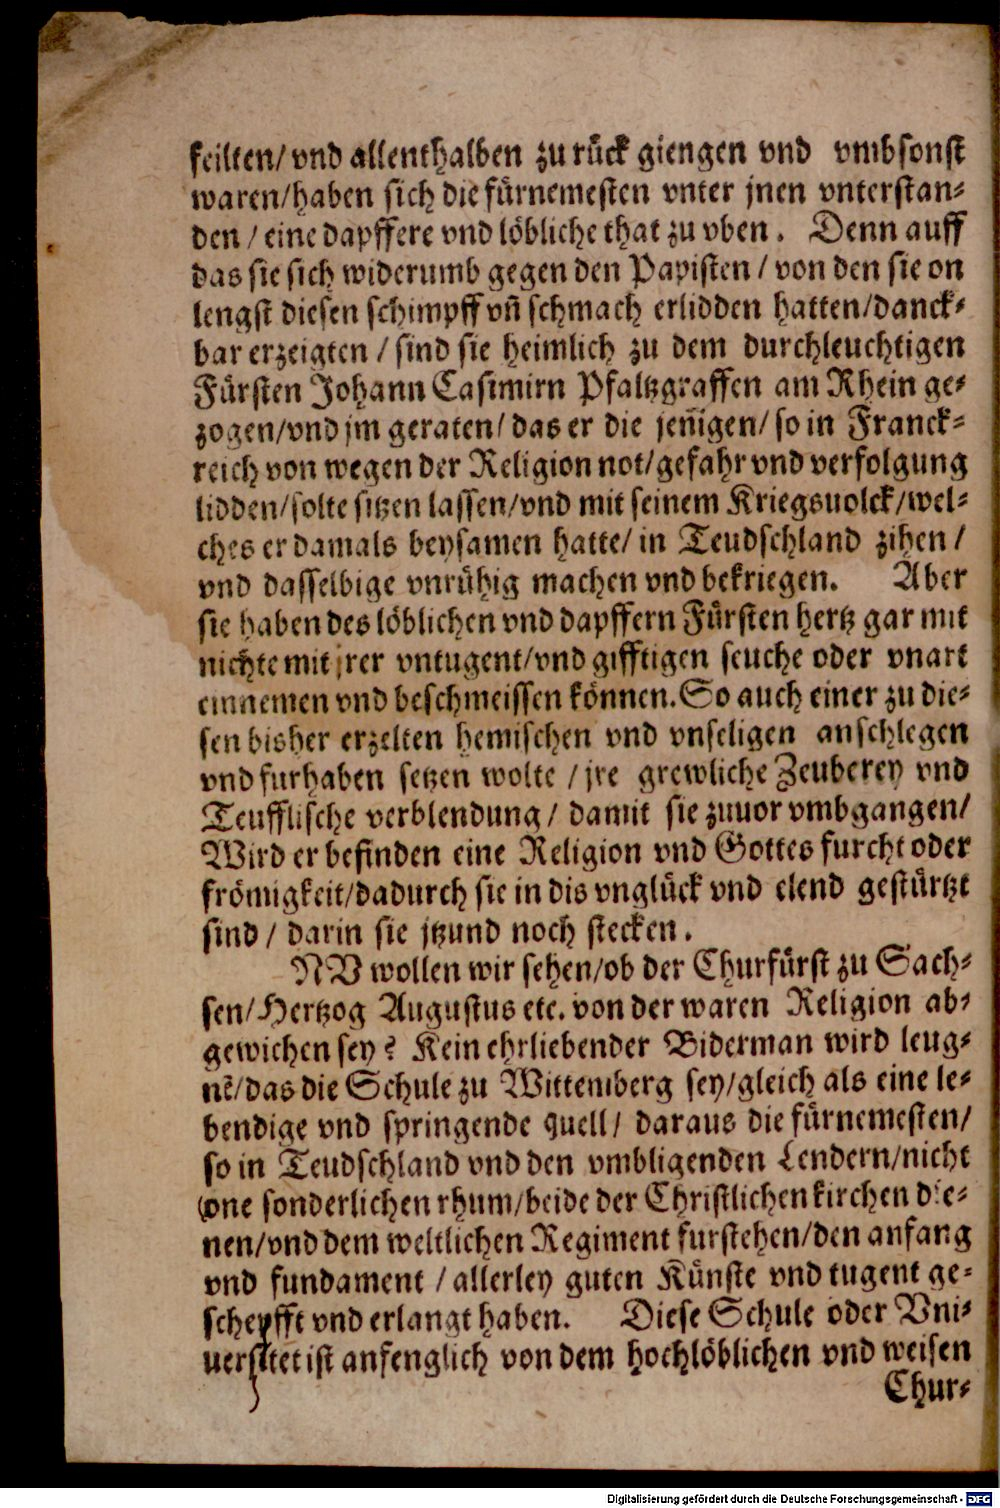 feilten/ vnd allenthalben zu rück giengen vnd vmbsonst
waren/haben sich die fürnemesten vnter jnen vnterstan-
den / eine dapffere vnd löbliche that zu vben. Denn auff
das sie sich widerumb gegen den Papisten / von den sie on
lengst diesen schimpff vñ schmach erlidden hatten/danck-
bar erzeigten / sind sie heimlich zu dem durchleuchtigen
Fürsten Johann Casimirn Pfaltzgraffen am Rhein ge-
zogen/vnd jm geraten/ das er die jeñigen/ so in Franck-
reich von wegen der Religion not/gefahr vnd verfolgung
lidden/solte sitzen lassen/vnd mit seinem Kriegsuolck/wel-
ches er damals beysamen hatte/ in Teudschland zihen /
vnd dasselbige vnrühig machen vnd bekriegen. Aber
sie haben des löblichen vnd dapffern Fürsten hertz gar mit
nichte mit jrer vntugent/vnd gifftigen seuche oder vnart
einnemen vnd beschmeissen können. So auch einer zu die-
sen bisher erzelten hemischen vnd vnseligen anschlegen
vnd furhaben setzen wolte / jre grewliche Zeuberey vnd
Teufflische verblendung / damit sie zuuor vmbgangen/
Wird er befinden eine Religion vnd Gottes furcht oder
frömigkeit/dadurch sie in dis vnglück vnd elend gestürtzt
sind / darin sie jtzund noch stecken.
NV wollen wir sehen/ob der Churfürst zu Sach-
sen/Hertzog Augustus etc. von der waren Religion ab-
gewichen sey? Kein ehrliebender Biderman wird leug-
nē/das die Schule zu Wittemberg sey/gleich als eine le-
bendige vnd springende quell/ daraus die fürnemesten/
so in Teudschland vnd den vmbligenden Lendern/nicht
one sonderlichen rhum/beide der Christlichen kirchen die-
nen/vnd dem weltlichen Regiment furstehen/den anfang
vnd fundament / allerley guten Künste vnd tugent ge-
schepfft vnd erlangt haben. Diese Schule oder Vni-
uersitet ist anfenglich von dem hochlöblichen vnd weisen
Chur-
Digitalisierung gefördert durch die Deutsche Forschungsgemeinschaft - DFG